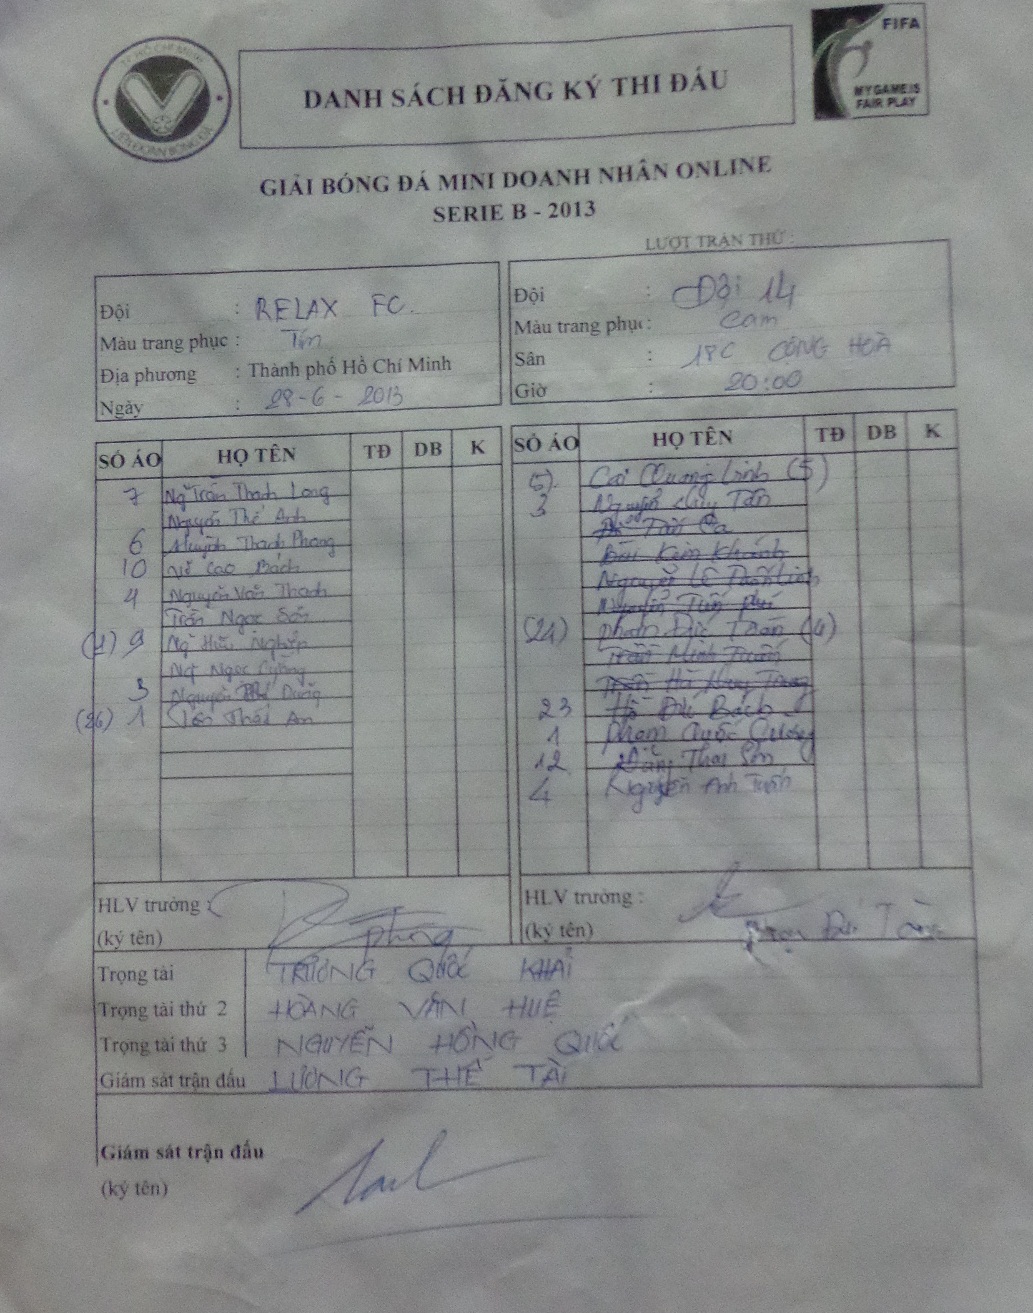 TP HỒ CHÍ MINH
LIÊN ĐOÀN BÓNG ĐÁ
DANH SÁCH ĐĂNG KÝ THI ĐẤU
FIFA
MY GAME IS
FAIR PLAY
GIẢI BÓNG ĐÁ MINI DOANH NHÂN ONLINE
SERIE B - 2013
LƯỢT TRẬN THỨ :
Đội : RELAX FC.
Màu trang phục : Tím
Địa phương : Thành phố Hồ Chí Minh
Ngày : 28-6-2013
Đội : Đội 14
Màu trang phục : Cam
Sân : 18C CỘNG HOÀ
Giờ : 20:00
SỐ ÁO HỌ TÊN TĐ DB K
7 Ng Trần Thanh Long
Nguyễn Thế Anh
6 Huỳnh Thanh Phong
10 Cao Bách
4 Nguyễn Văn Thanh
Trần Ngọc Sơn
9 Ng Hữu Nghiệp
Ngọc Cường
3 Nguyễn Dũng
(26) 1 Thái An
SỐ ÁO HỌ TÊN TĐ DB K
(5) Linh (5)
3 Nguyễn Duy Tân
Bùi Kim Khánh
Nguyễn Lê
Nguyễn Tuấn Phú
(21) Phạm Đức
Trần Minh Tuấn
Hà Huy Trang
23 Hồ Đức Bách
1 Phạm Quốc Cường
12 Đặng Thái Sơn
4 Nguyễn Anh Tuấn
HLV trưởng :
(ký tên) Phong
HLV trưởng :
(ký tên)
Trọng tài TRƯƠNG QUỐC KHẢI
Trọng tài thứ 2 HOÀNG VĂN HUỆ
Trọng tài thứ 3 NGUYỄN HỒNG QUỐC
Giám sát trận đấu LƯƠNG THẾ TÀI
Giám sát trận đấu
(ký tên)